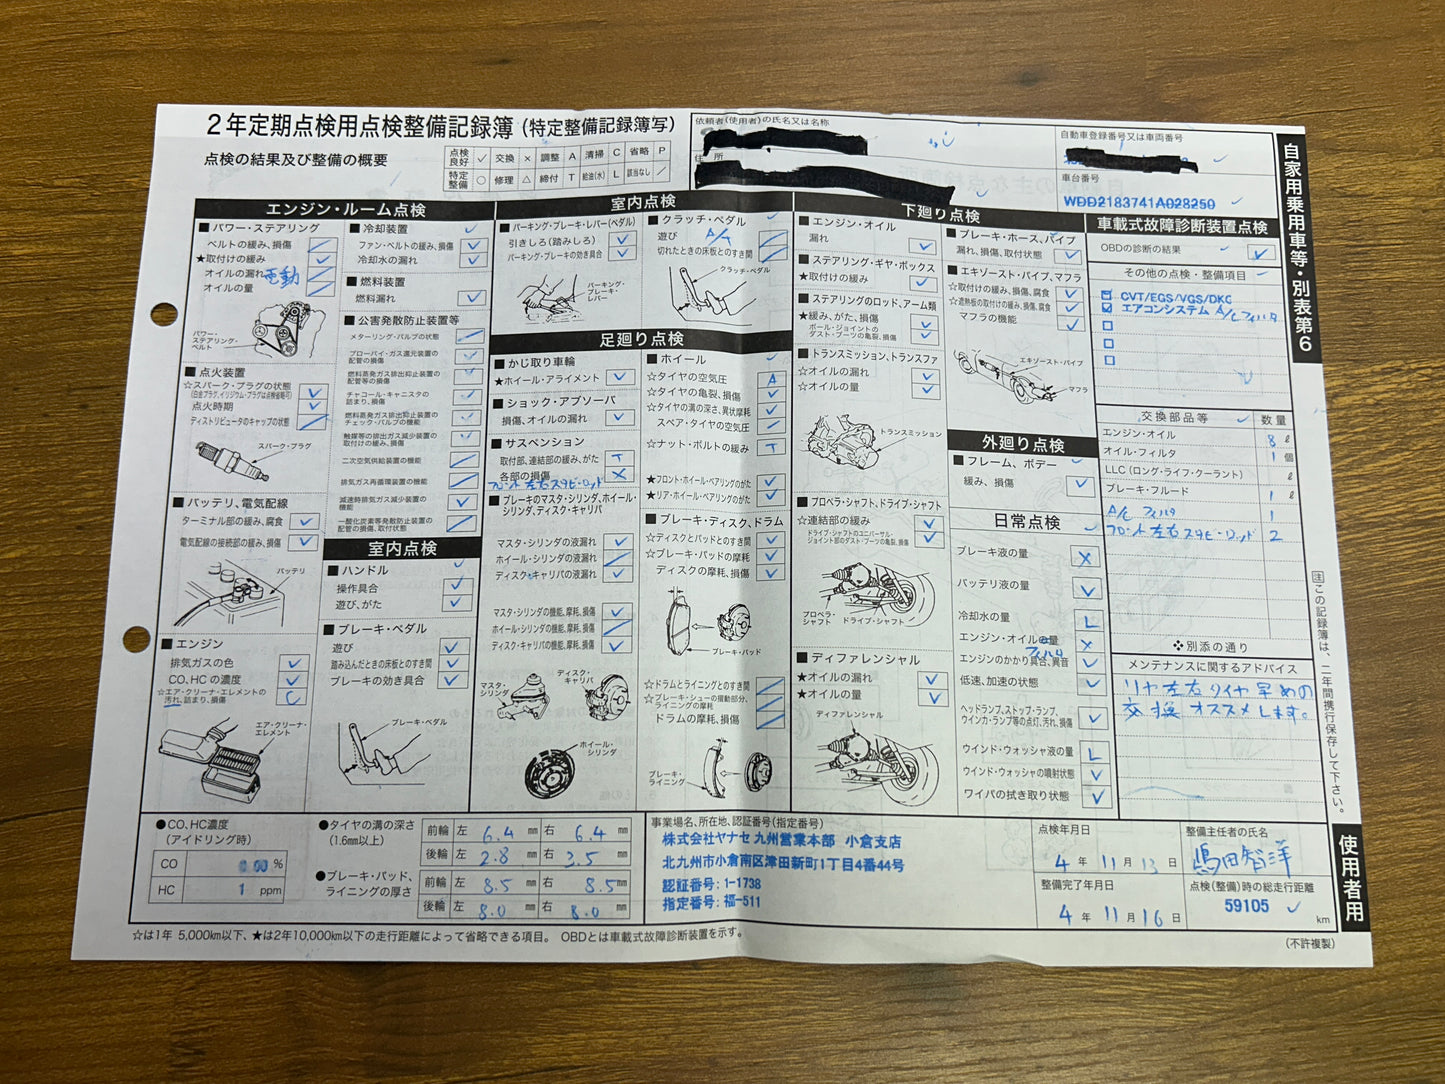 2年定期点検用点検整備記録簿(特定整備記録簿写)
点検の結果及び整備の概要
点検良好 ✓ 交換 × 調整 A 清掃 C 省略 P
特定整備 ○ 修理 △ 締付 T 給油(水) L 該当なし /
依頼者(使用者)の氏名又は名称
住所
自動車登録番号又は車両番号
車台番号
WDD2183741A028250
自家用乗用車等・別表第6
エンジン・ルーム点検
■パワー・ステアリング
ベルトの緩み、損傷
★取付けの緩み
オイルの漏れ
電動
オイルの量
パワー・ステアリング・ベルト
■点火装置
☆スパーク・プラグの状態
(白金プラグ、イリジウム・プラグは点検省略可)
点火時期
ディストリビュータのキャップの状態
スパーク・プラグ
■バッテリ、電気配線
ターミナル部の緩み、腐食
電気配線の接続部の緩み、損傷
バッテリ
■エンジン
排気ガスの色
CO、HCの濃度
☆エア・クリーナ・エレメントの汚れ、詰まり、損傷 C
エア・クリーナ・エレメント
■冷却装置
ファン・ベルトの緩み、損傷
冷却水の漏れ
■燃料装置
燃料漏れ
■公害発散防止装置等
メターリング・バルブの状態
ブローバイ・ガス還元装置の配管の損傷
燃料蒸発ガス排出抑止装置の配管等の損傷
チャコール・キャニスタの詰まり、損傷
燃料蒸発ガス排出抑止装置のチェック・バルブの機能
触媒等の排出ガス減少装置の取付けの緩み、損傷
二次空気供給装置の機能
排気ガス再循環装置の機能
減速時排気ガス減少装置の機能
一酸化炭素等発散防止装置の配管の損傷、取付状態
室内点検
■ハンドル
操作具合
遊び、がた
■ブレーキ・ペダル
遊び
踏み込んだときの床板とのすき間
ブレーキの効き具合
ブレーキ・ペダル
室内点検
■パーキング・ブレーキ・レバー(ペダル)
引きしろ(踏みしろ)
パーキング・ブレーキの効き具合
パーキング・ブレーキ・レバー
■クラッチ・ペダル
遊び A/T
切れたときの床板とのすき間
クラッチ・ペダル
足廻り点検
■かじ取り車輪
★ホイール・アライメント
■ショック・アブソーバ
損傷、オイルの漏れ
■サスペンション
取付部、連結部の緩み、がた T
各部の損傷 ×
フロント左右スタビ・ロッド
■ブレーキのマスタ・シリンダ、ホイール・シリンダ、ディスク・キャリパ
マスタ・シリンダの液漏れ
ホイール・シリンダの液漏れ
ディスク・キャリパの液漏れ
マスタ・シリンダの機能、摩耗、損傷
ホイール・シリンダの機能、摩耗、損傷
ディスク・キャリパの機能、摩耗、損傷
マスタ・シリンダ
ディスク・キャリパ
ホイール・シリンダ
■ホイール
☆タイヤの空気圧 A
☆タイヤの亀裂、損傷
☆タイヤの溝の深さ、異状摩耗
スペア・タイヤの空気圧
☆ナット・ボルトの緩み T
★フロント・ホイール・ベアリングのがた
★リア・ホイール・ベアリングのがた
■ブレーキ・ディスク、ドラム
☆ディスクとパッドとのすき間
☆ブレーキ・パッドの摩耗
ディスクの摩耗、損傷
ブレーキ・パッド
☆ドラムとライニングとのすき間
☆ブレーキ・シューの摺動部分、ライニングの摩耗
ドラムの摩耗、損傷
ブレーキ・ライニング
下廻り点検
■エンジン・オイル
漏れ
■ステアリング・ギヤ・ボックス
★取付けの緩み
■ステアリングのロッド、アーム類
★緩み、がた、損傷
ボール・ジョイントのダスト・ブーツの亀裂、損傷
■トランスミッション、トランスファ
☆オイルの漏れ
☆オイルの量
トランスミッション
■プロペラ・シャフト、ドライブ・シャフト
☆連結部の緩み
ドライブ・シャフトのユニバーサル・ジョイント部のダスト・ブーツの亀裂、損傷
プロペラ・シャフト
ドライブ・シャフト
■ディファレンシャル
★オイルの漏れ
★オイルの量
ディファレンシャル
■ブレーキ・ホース、パイプ
漏れ、損傷、取付状態
■エキゾースト・パイプ、マフラ
☆取付けの緩み、損傷、腐食
☆遮熱板の取付けの緩み、損傷、腐食
マフラの機能
エキゾースト・パイプ
マフラ
外廻り点検
■フレーム、ボデー
緩み、損傷
日常点検
ブレーキ液の量 ×
バッテリ液の量
冷却水の量 L
エンジン・オイルの量 ×
エンジンのかかり具合、異音
低速、加速の状態
ヘッドランプ、ストップ・ランプ、ウインカ・ランプ等の点灯、汚れ、損傷
ウインド・ウォッシャ液の量 L
ウインド・ウォッシャの噴射状態
ワイパの拭き取り状態
車載式故障診断装置点検
OBDの診断の結果
その他の点検・整備項目
CVT/EGS/VGS/DKG
エアコンシステム A/Cフィルタ
交換部品等 数量
エンジン・オイル 8 ℓ
オイル・フィルタ 1 個
LLC(ロング・ライフ・クーラント) ℓ
ブレーキ・フルード 1 ℓ
A/C フィルタ 1
フロント左右スタビ・ロッド 2
❖別添の通り
メンテナンスに関するアドバイス
リヤ左右タイヤ早めの
交換オススメします。
注 この記録簿は、二年間携行保存して下さい。
使用者用
●CO、HC濃度
(アイドリング時)
CO 0.00 %
HC 1 ppm
●タイヤの溝の深さ
(1.6mm以上)
前輪 左 6.4 mm 右 6.4 mm
後輪 左 2.8 mm 右 3.5 mm
●ブレーキ・パッド、ライニングの厚さ
前輪 左 8.5 mm 右 8.5 mm
後輪 左 8.0 mm 右 8.0 mm
事業場名、所在地、認証番号(指定番号)
株式会社ヤナセ 九州営業本部 小倉支店
北九州市小倉南区津田新町1丁目4番44号
認証番号:1-1738
指定番号:福-511
点検年月日
4 年 11 月 13 日
整備完了年月日
4 年 11 月 16 日
整備主任者の氏名
点検(整備)時の総走行距離
59105 km
☆は1年 5,000km以下、★は2年10,000km以下の走行距離によって省略できる項目。 OBDとは車載式故障診断装置を示す。
(不許複製)